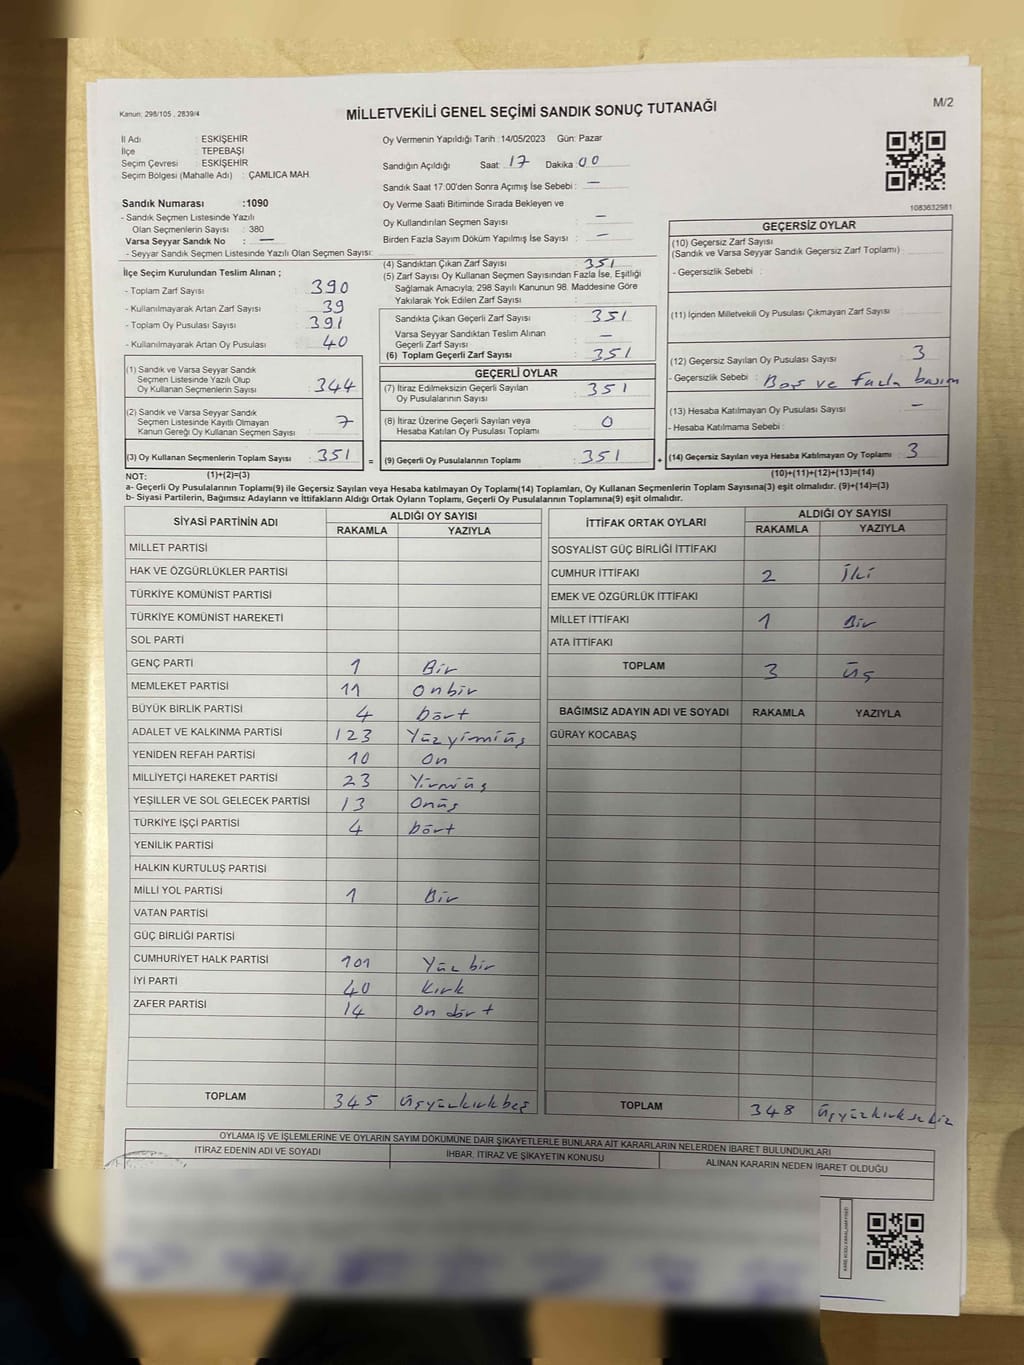 Kanun: 298/105 , 2839/4
MİLLETVEKİLİ GENEL SEÇİMİ SANDIK SONUÇ TUTANAĞI
M/2
İl Adı : ESKİŞEHİR
İlçe : TEPEBAŞI
Seçim Çevresi : ESKİŞEHİR
Seçim Bölgesi (Mahalle Adı) : ÇAMLICA MAH.
Sandık Numarası :1090
- Sandık Seçmen Listesinde Yazılı
Olan Seçmenlerin Sayısı : 380
Varsa Seyyar Sandık No : —
- Seyyar Sandık Seçmen Listesinde Yazılı Olan Seçmen Sayısı:
İlçe Seçim Kurulundan Teslim Alınan ;
- Toplam Zarf Sayısı : 390
- Kullanılmayarak Artan Zarf Sayısı : 39
- Toplam Oy Pusulası Sayısı : 391
- Kullanılmayarak Artan Oy Pusulası : 40
(1) Sandık ve Varsa Seyyar Sandık
Seçmen Listesinde Yazılı Olup
Oy Kullanan Seçmenlerin Sayısı : 344
(2) Sandık ve Varsa Seyyar Sandık
Seçmen Listesinde Kayıtlı Olmayan
Kanun Gereği Oy Kullanan Seçmen Sayısı : 7
(3) Oy Kullanan Seçmenlerin Toplam Sayısı : 351 =
Oy Vermenin Yapıldığı Tarih : 14/05/2023 Gün: Pazar
Sandığın Açıldığı Saat: 17 Dakika 00
Sandık Saat 17:00'den Sonra Açımış İse Sebebi : —
Oy Verme Saati Bitiminde Sırada Bekleyen ve
Oy Kullandırılan Seçmen Sayısı : —
Birden Fazla Sayım Döküm Yapılmış İse Sayısı : —
(4) Sandıktan Çıkan Zarf Sayısı : 351
(5) Zarf Sayısı Oy Kullanan Seçmen Sayısından Fazla İse, Eşitliği
Sağlamak Amacıyla; 298 Sayılı Kanunun 98. Maddesine Göre
Yakılarak Yok Edilen Zarf Sayısı :
Sandıkta Çıkan Geçerli Zarf Sayısı : 351
Varsa Seyyar Sandıktan Teslim Alınan
Geçerli Zarf Sayısı : —
(6) Toplam Geçerli Zarf Sayısı : 351
GEÇERLİ OYLAR
(7) İtiraz Edilmeksizin Geçerli Sayılan
Oy Pusulalarının Sayısı : 351
(8) İtiraz Üzerine Geçerli Sayılan veya
Hesaba Katılan Oy Pusulası Toplamı : 0
(9) Geçerli Oy Pusulalarının Toplamı : 351 +
1083632981
GEÇERSİZ OYLAR
(10) Geçersiz Zarf Sayısı
(Sandık ve Varsa Seyyar Sandık Geçersiz Zarf Toplamı) :
- Geçersizlik Sebebi :
(11) İçinden Milletvekili Oy Pusulası Çıkmayan Zarf Sayısı :
(12) Geçersiz Sayılan Oy Pusulası Sayısı : 3
- Geçersizlik Sebebi : Boş ve fazla basım
(13) Hesaba Katılmayan Oy Pusulası Sayısı : —
- Hesaba Katılmama Sebebi :
(14) Geçersiz Sayılan veya Hesaba Katılmayan Oy Toplamı : 3
NOT: (1)+(2)=(3) (10)+(11)+(12)+(13)=(14)
a- Geçerli Oy Pusulalarının Toplamı(9) ile Geçersiz Sayılan veya Hesaba katılmayan Oy Toplamı(14) Toplamları, Oy Kullanan Seçmenlerin Toplam Sayısına(3) eşit olmalıdır. (9)+(14)=(3)
b- Siyasi Partilerin, Bağımsız Adayların ve İttifakların Aldığı Ortak Oyların Toplamı, Geçerli Oy Pusulalarının Toplamına(9) eşit olmalıdır.
SİYASİ PARTİNİN ADI ALDIĞI OY SAYISI
RAKAMLA YAZIYLA
MİLLET PARTİSİ
HAK VE ÖZGÜRLÜKLER PARTİSİ
TÜRKİYE KOMÜNİST PARTİSİ
TÜRKİYE KOMÜNİST HAREKETİ
SOL PARTİ
GENÇ PARTİ 1 Bir
MEMLEKET PARTİSİ 11 Onbir
BÜYÜK BİRLİK PARTİSİ 4 Dört
ADALET VE KALKINMA PARTİSİ 123 Yüzyirmiüç
YENİDEN REFAH PARTİSİ 10 On
MİLLİYETÇİ HAREKET PARTİSİ 23 Yirmiüç
YEŞİLLER VE SOL GELECEK PARTİSİ 13 Onüç
TÜRKİYE İŞÇİ PARTİSİ 4 Dört
YENİLİK PARTİSİ
HALKIN KURTULUŞ PARTİSİ
MİLLİ YOL PARTİSİ 1 Bir
VATAN PARTİSİ
GÜÇ BİRLİĞİ PARTİSİ
CUMHURİYET HALK PARTİSİ 101 Yüz bir
İYİ PARTİ 40 Kırk
ZAFER PARTİSİ 14 On dört
TOPLAM 345 Üçyüzkırkbeş
İTTİFAK ORTAK OYLARI ALDIĞI OY SAYISI
RAKAMLA YAZIYLA
SOSYALİST GÜÇ BİRLİĞİ İTTİFAKI
CUMHUR İTTİFAKI 2 İki
EMEK VE ÖZGÜRLÜK İTTİFAKI
MİLLET İTTİFAKI 1 Bir
ATA İTTİFAKI
TOPLAM 3 Üç
BAĞIMSIZ ADAYIN ADI VE SOYADI RAKAMLA YAZIYLA
GÜRAY KOCABAŞ
TOPLAM 348 Üçyüzkırksekiz
OYLAMA İŞ VE İŞLEMLERİNE VE OYLARIN SAYIM DÖKÜMÜNE DAİR ŞİKAYETLERLE BUNLARA AİT KARARLARIN NELERDEN İBARET BULUNDUKLARI
İTİRAZ EDENİN ADI VE SOYADI İHBAR, İTİRAZ VE ŞİKAYETİN KONUSU ALINAN KARARIN NEDEN İBARET OLDUĞU